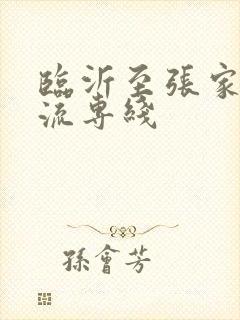 臨沂至張家
流專綫
孫會芳